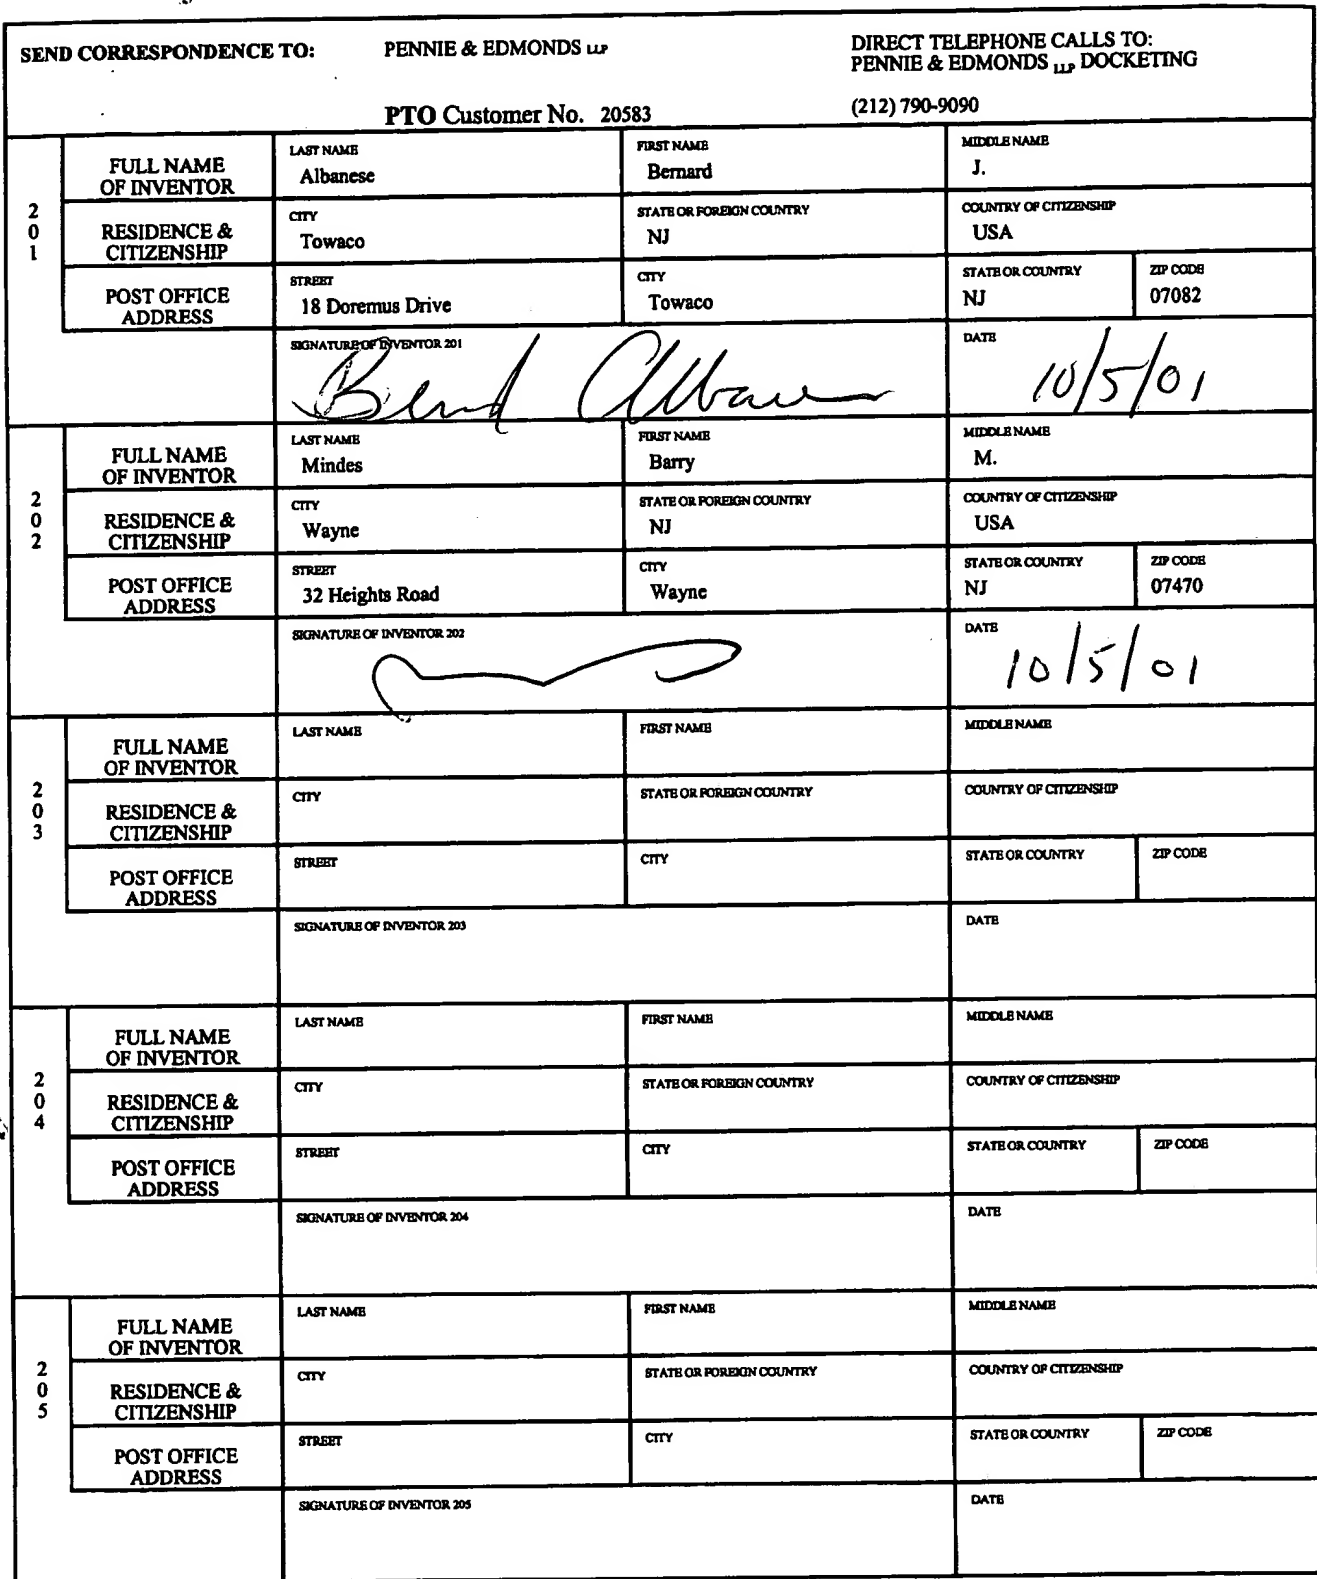 SEND CORRESPONDENCE TO: PENNIE & EDMONDS LLP DIRECT TELEPHONE CALLS TO:
PENNIE & EDMONDS LLP DOCKETING
PTO Customer No. 20583 (212) 790-9090
201
FULL NAME OF INVENTOR
LAST NAME Albanese
FIRST NAME Bernard
MIDDLE NAME J.
RESIDENCE & CITIZENSHIP
CITY Towaco
STATE OR FOREIGN COUNTRY NJ
COUNTRY OF CITIZENSHIP USA
POST OFFICE ADDRESS
STREET 18 Doremus Drive
CITY Towaco
STATE OR COUNTRY NJ
ZIP CODE 07082
SIGNATURE OF INVENTOR 201
DATE 10/5/01
202
FULL NAME OF INVENTOR
LAST NAME Mindes
FIRST NAME Barry
MIDDLE NAME M.
RESIDENCE & CITIZENSHIP
CITY Wayne
STATE OR FOREIGN COUNTRY NJ
COUNTRY OF CITIZENSHIP USA
POST OFFICE ADDRESS
STREET 32 Heights Road
CITY Wayne
STATE OR COUNTRY NJ
ZIP CODE 07470
SIGNATURE OF INVENTOR 202
DATE 10/5/01
203
FULL NAME OF INVENTOR
LAST NAME
FIRST NAME
MIDDLE NAME
RESIDENCE & CITIZENSHIP
CITY
STATE OR FOREIGN COUNTRY
COUNTRY OF CITIZENSHIP
POST OFFICE ADDRESS
STREET
CITY
STATE OR COUNTRY
ZIP CODE
SIGNATURE OF INVENTOR 203
DATE
204
FULL NAME OF INVENTOR
LAST NAME
FIRST NAME
MIDDLE NAME
RESIDENCE & CITIZENSHIP
CITY
STATE OR FOREIGN COUNTRY
COUNTRY OF CITIZENSHIP
POST OFFICE ADDRESS
STREET
CITY
STATE OR COUNTRY
ZIP CODE
SIGNATURE OF INVENTOR 204
DATE
205
FULL NAME OF INVENTOR
LAST NAME
FIRST NAME
MIDDLE NAME
RESIDENCE & CITIZENSHIP
CITY
STATE OR FOREIGN COUNTRY
COUNTRY OF CITIZENSHIP
POST OFFICE ADDRESS
STREET
CITY
STATE OR COUNTRY
ZIP CODE
SIGNATURE OF INVENTOR 205
DATE